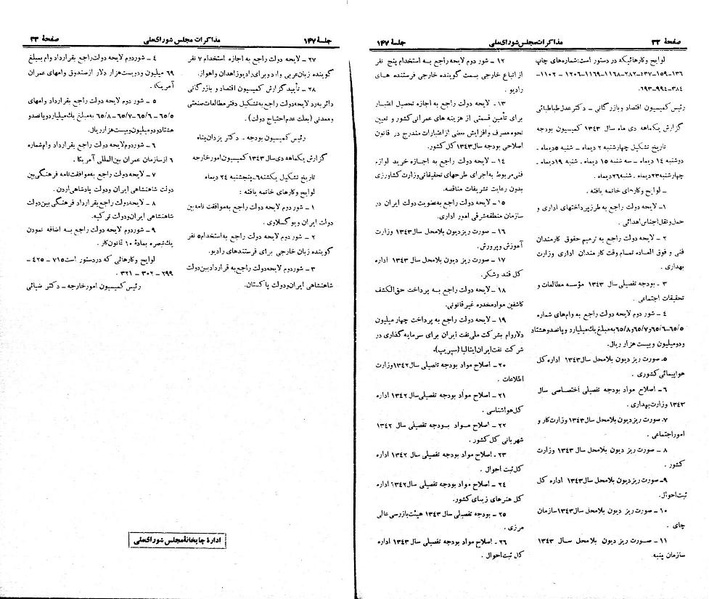 صفحهٔ ۳۲
مذاکرات مجلس شورای ملی
جلسهٔ ۱۴۷
لوایح وکارهائیکه در دستور است: شماره‌های چاپ
۱۳۶-۱۵۹-۱۳۷-۲۸۲-۱۱۶۸-۱۱۶۹-۱۲۰۶-۱۱۰۲-
۳۸۴-۹۹۴-۶۹۳.
رئیس کمیسیون اقتصاد و بازرگانی - دکتر عدل طباطبائی
گزارش یکماهه دی ماه سال ۱۳۴۳ کمیسیون بودجه
تاریخ تشکیل چهارشنبه ۲ دیماه - شنبه ۵ دیماه -
دوشنبه ۱۴ دیماه - سه شنبه ۱۵ دیماه - شنبه ۱۹ دیماه
چهارشنبه ۲۳ دیماه - شنبه ۲۶ دیماه.
لوایح وکارهای خاتمه یافته .
۱ - لایحه دولت راجع به طرز پرداختهای اداری و
حمل و نقل اجناس اهدائی .
۲ - لایحه دولت راجع به ترمیم حقوق کارمندان
فنی و فوق العاده تمام وقت کارمندان اداری وزارت
بهداری .
۳ - بودجه تفصیلی سال ۱۳۴۳ مؤسسه مطالعات و
تحقیقات اجتماعی .
۴ - شور دوم لایحه دولت راجع به وام‌های شماره
۶۵/۵-۶۵/۶و۶۵/۷و۶۵/۸ به مبلغ یك میلیارد و پانصد و هشتاد
و دو میلیون و بیست هزار ریال.
۵ - صورت ریز دیون بلامحل سال ۱۳۴۳ اداره کل
هواپیمائی کشوری .
۶ - اصلاح مواد بودجه تفصیلی اختصاصی سال
۱۳۴۳ وزارت بهداری .
۷ - صورت ریز دیون بلامحل سال ۱۳۴۳ وزارت کار و
امور اجتماعی .
۸ - صورت ریز دیون بلامحل سال ۱۳۴۳ وزارت
کشور .
۹ - صورت ریز دیون بلامحل سال ۱۳۴۳ اداره کل
ثبت احوال.
۱۰ - صورت ریز دیون بلامحل سال ۱۳۴۳ سازمان
چای .
۱۱ - صورت ریز دیون بلامحل سال ۱۳۴۳
سازمان پنبه
۱۲ - لایحه دولت راجع به استخدام پنج نفر
از اتباع خارجی بسمت گوینده خارجی فرستنده های
رادیو .
۱۳ - لایحه دولت راجع به اجازه تحصیل اعتبار
برای تأمین قسمتی از هزینه های عمرانی کشور و تعیین
نحوه مصرف و افزایش بعضی از اعتبارات مندرج در قانون
اصلاحی بودجه سال ۱۳۴۳ کل کشور.
۱۴ - لایحه دولت راجع به اجازه خرید لوازم
فنی مربوط به اجرای طرحهای تحقیقاتی وزارت کشاورزی
بدون رعایت تشریفات مناقصه.
۱۵ - لایحه دولت راجع به عضویت دولت ایران در
سازمان منطقه شرقی امور اداری.
۱۶ - صورت ریز دیون بلامحل سال ۱۳۴۳ وزارت
آموزش و پرورش .
۱۷ - صورت ریز دیون بلامحل سال ۱۳۴۳ اداره
کل قند و شکر.
۱۸ - لایحه دولت راجع به پرداخت حق الکشف
کاشفین مواد مخدره غیرقانونی.
۱۹ - لایحه دولت راجع به پرداخت چهار میلیون
دلار وام بشرکت ملی نفت ایران برای سرمایه گذاری در
شرکت نفت ایران ایتالیا (سیریپ).
۲۰ - اصلاح مواد بودجه تفصیلی سال ۱۳۴۲ وزارت
اطلاعات .
۲۱ - اصلاح مواد بودجه تفصیلی سال ۱۳۴۲ اداره
کل هواشناسی .
۲۲ - اصلاح مواد بودجه تفصیلی سال ۱۳۴۲
شهربانی کل کشور .
۲۳ - اصلاح مواد بودجه تفصیلی سال ۱۳۴۲ اداره
کل ثبت احوال .
۲۴ - اصلاح مواد بودجه تفصیلی سال ۱۳۴۲ اداره
کل هنرهای زیبای کشور.
۲۵ - بودجه تفصیلی سال ۱۳۴۳ هیئت بازرسی عالی
مرزی .
۲۶ - اصلاح مواد بودجه تفصیلی سال ۱۳۴۳ اداره
کل ثبت احوال .
جلسهٔ ۱۴۷
مذاکرات مجلس شورای ملی
صفحهٔ ۳۳
۲۷ - لایحه دولت راجع به اجازه استخدام ۷ نفر
گوینده زبان عربی و اردو برای رادیو زاهدان و اهواز.
۲۸ - تأیید گزارش کمیسیون اقتصاد و بازرگانی
دائر به رد لایحه دولت راجع به تشکیل دفتر مطالعات صنعتی
و معدنی (بعلت عدم احتیاج دولت).
رئیس کمیسیون بودجه . دکتر یزدان پناه
گزارش یکماهه دی سال ۱۳۴۳ کمیسیون امور خارجه
تاریخ تشکیل یکشنبه ۶ - پنجشنبه ۲۴ دیماه
لوایح و کارهای خاتمه یافته :
۱ - شور دوم لایحه دولت راجع به موافقت نامه بین
دولت ایران و یوگسلاوی .
۲ - لایحه دولت راجع به استخدام ۵ نفر
گوینده زبان خارجی برای فرستنده‌های رادیو.
۳ - شور دوم لایحه دولت راجع به قرارداد بین دولت
شاهنشاهی ایران و دولت پاکستان.
۴ - شور دوم لایحه دولت راجع بقرارداد وام بمبلغ
۶۹ میلیون و دویست هزار دلار از صندوق وامهای عمران
آمریکا .
۵ - شور دوم لایحه دولت راجع بقرارداد وامهای
۶۵/۵-۶۵/۶-۶۵/۷و۶۵/۸ بمبلغ یك میلیارد و پانصد و
هشتاد و دو میلیون و بیست هزار ریال.
۶ - شور دوم لایحه دولت راجع بقرارداد وام شماره
۶ از سازمان عمران بین المللی آمریکا .
۷ - لایحه دولت راجع به موافقت نامه فرهنگی بین
دولت شاهنشاهی ایران و دولت پادشاهی اردن .
۸ - لایحه دولت راجع بقرارداد فرهنگی بین دولت
شاهنشاهی ایران و دولت ترکیه.
۹ - شور دوم لایحه دولت راجع به اضافه نمودن
یك تبصره به مادهٔ ۱۰ قانون کار .
لوایح وکارهائی که در دستور است ۷۱۵ - ۴۲۵ -
۲۹۹ - ۳۰۲ - ۳۲۱ .
رئیس کمیسیون امور خارجه - دکتر ضیائی
ادارهٔ چاپخانهٔ مجلس شورای ملی